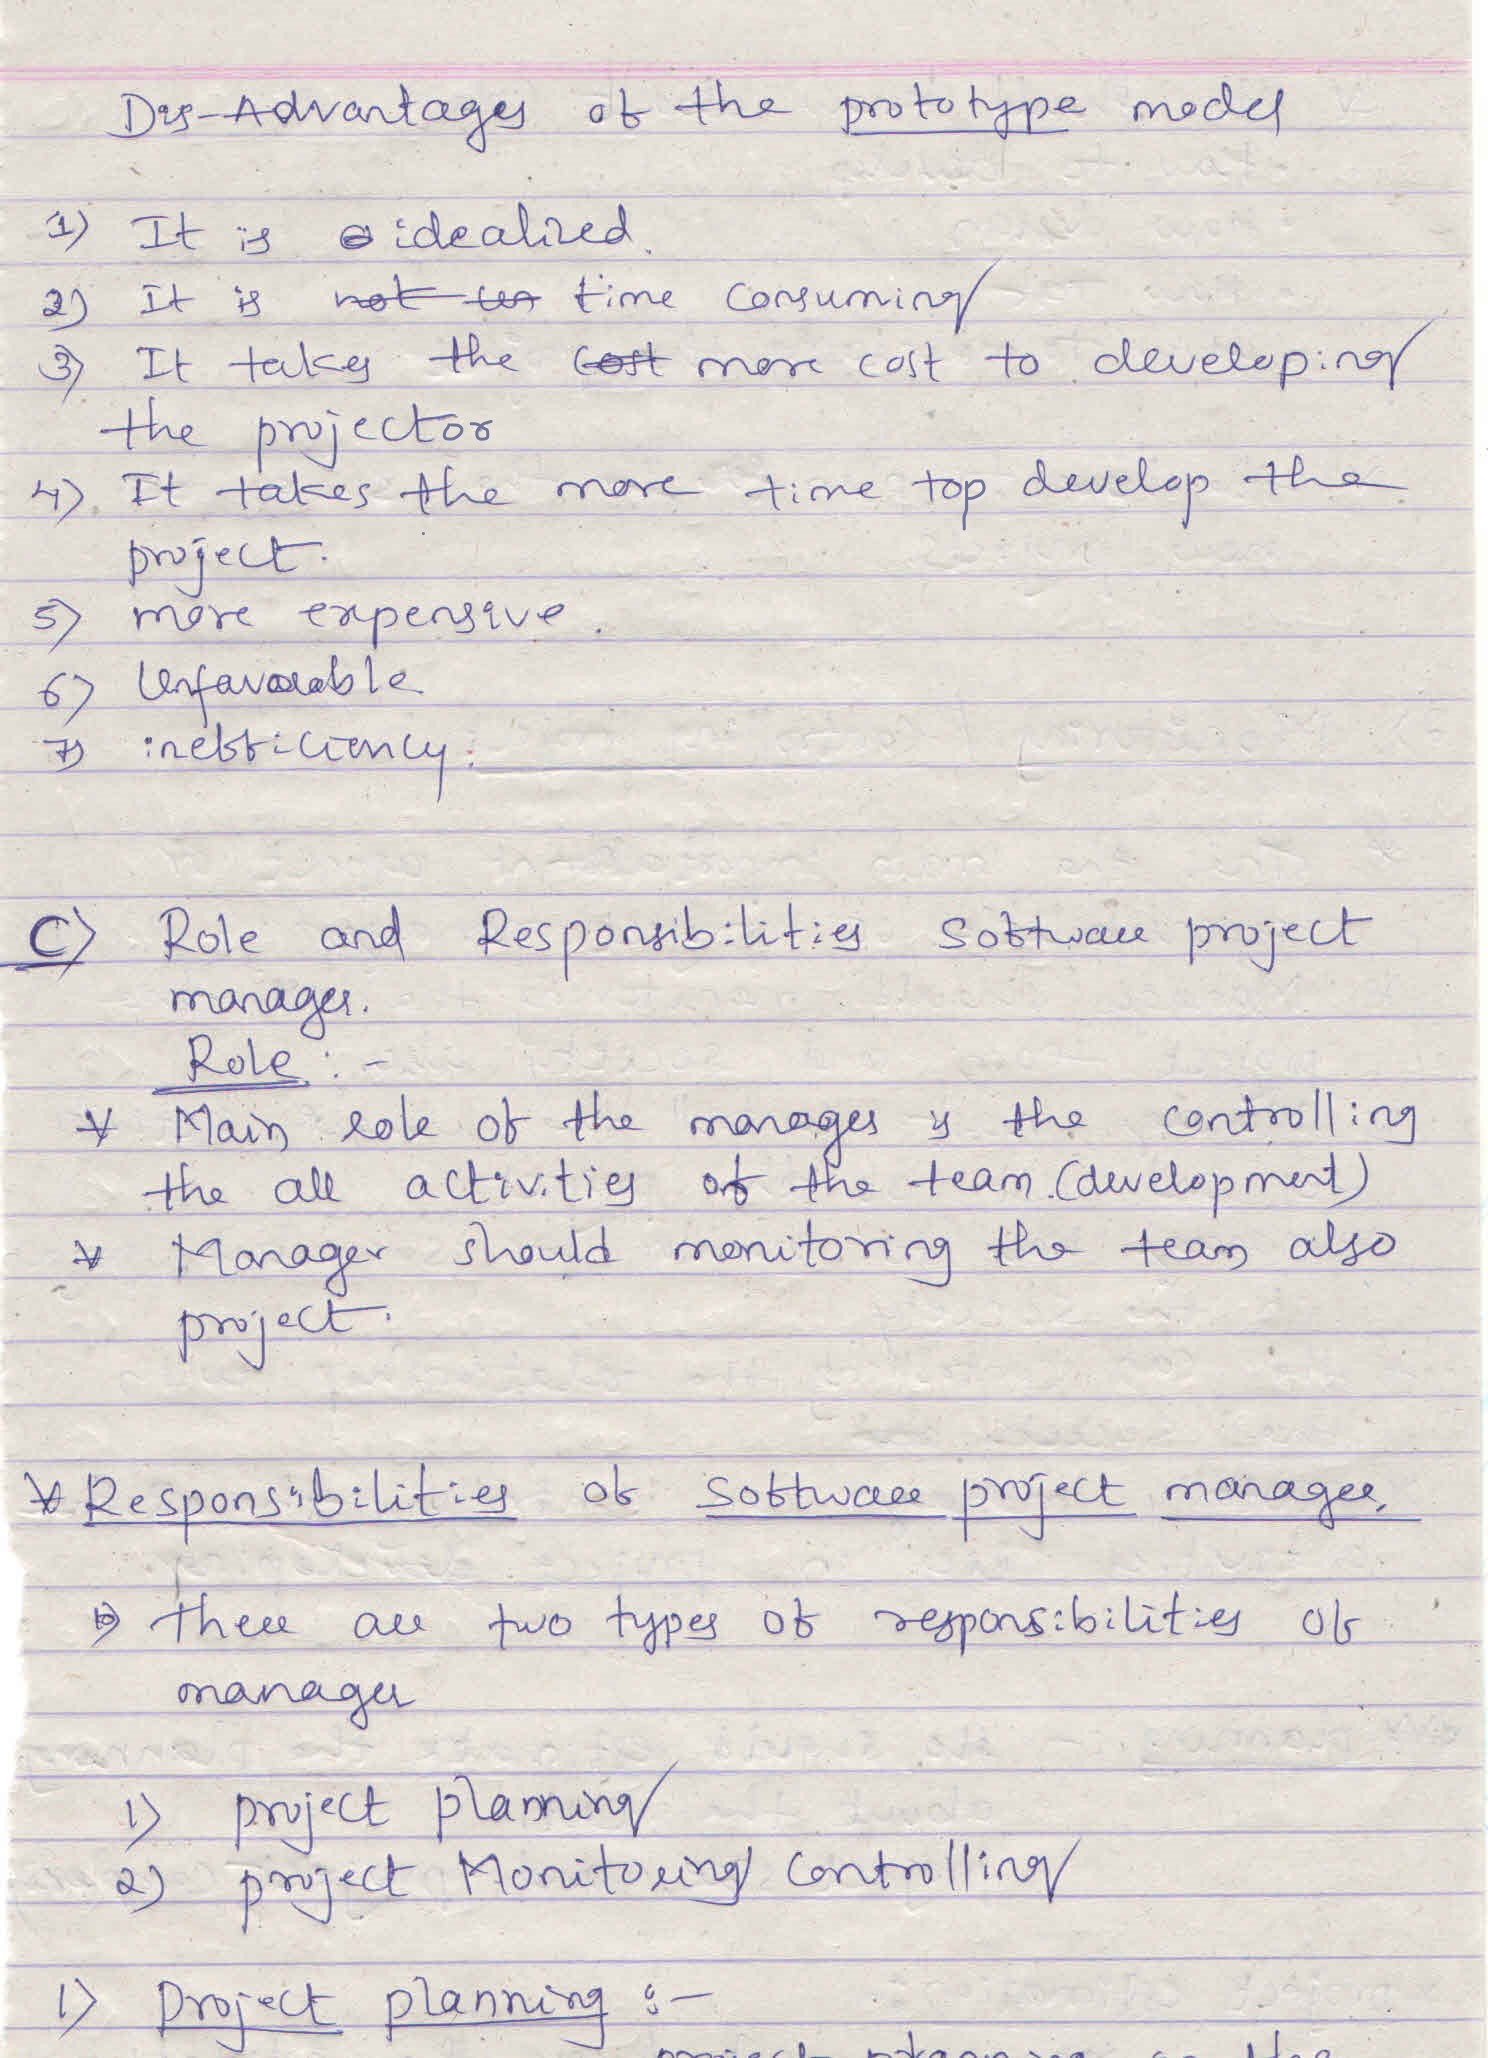 Dis-Advantages of the prototype model
1) It is idealized.
2) It is not time consuming
3) It takes the cost more cost to developing
the projector
4) It takes the more time top develop the
project.
5) more expensive.
6) Unfavourable
7) inefficiency.
C) Role and Responsibilities Software project
manager.
Role :-
* Main role of the manager is the controlling
the all activities of the team.(development)
* Manager should monitoring the team also
project.
* Responsibilities of Software project manager.
=> there are two types of responsibilities of
manager
1) project planning
2) project Monitoring controlling
1) Project planning :-
project planning is the